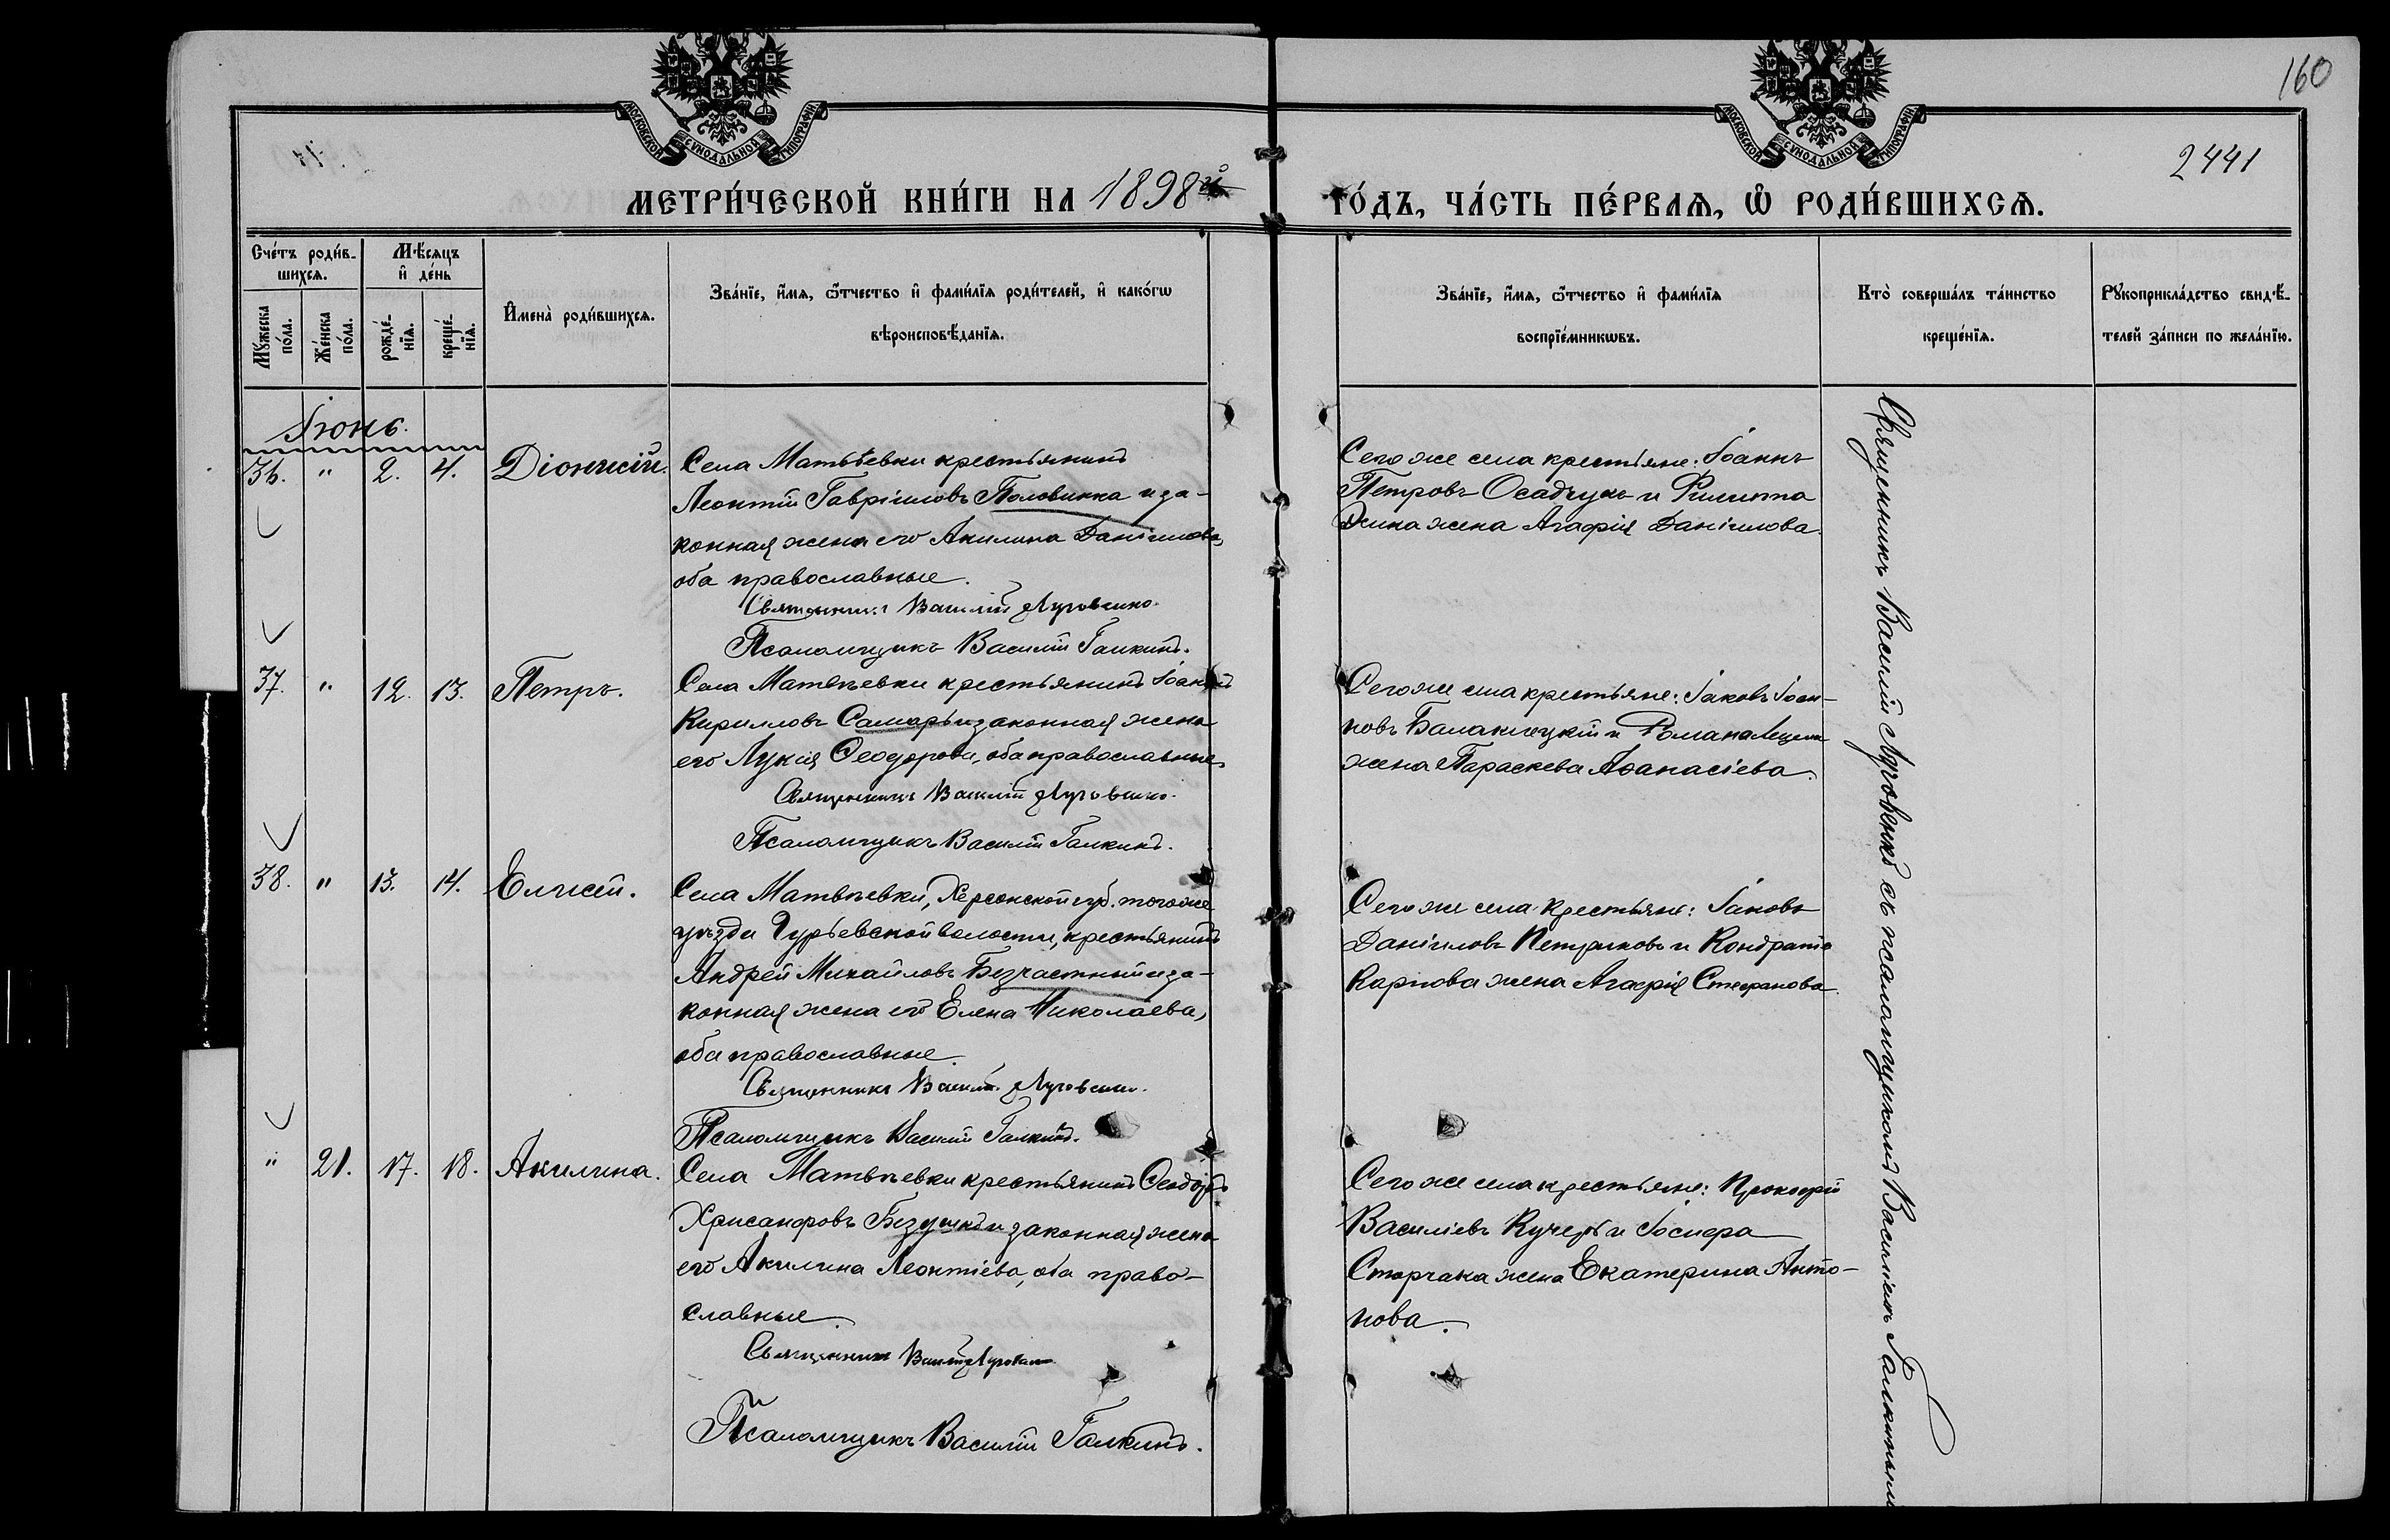 160
2441
МОСКОВСКОЙ СѴНОДАЛЬНОЙ ТИПОГРАФІИ
МОСКОВСКОЙ СѴНОДАЛЬНОЙ ТИПОГРАФІИ
МЕТРИ́ЧЕСКОЙ КНИ́ГИ НА 1898й ГО́ДЪ, ЧА́СТЬ ПЕ́РВАѦ, Ѡ҆ РОДИ́ВШИХСѦ.
Сче́тъ роди́в-
шихсѧ.
Мѣ́сѧцъ
и҆ де́нь
Мꙋ́жеска
по́ла.
Же́нска
по́ла.
рожде́-
нїѧ.
креще́-
нїѧ.
И҆мена̀ роди́вшихсѧ.
Зва́нїе, и҆́мѧ, ѻ҆́тчество и҆ фами́лїѧ роди́телей, и҆ како́гѡ
вѣроисповѣ́данїѧ.
Зва́нїе, и҆́мѧ, ѻ҆́тчество и҆ фами́лїѧ
воспрїе́мникѡвъ.
Кто̀ соверша́лъ та́инство
креще́нїѧ.
Рꙋкоприкла́дство свидѣ́-
телей за́писи по жела́нїю.
Іюнь.
36. " 2. 4. Діонисій.
Села Матвѣевки крестьянинъ
Леонтій Гавріиловъ Половинка и за-
конная жена его Акилина Даніилова,
оба православные.
Священникъ Василій Луговенко.
Псаломщикъ Василій Галкинъ.
Сего же села крестьяне: Іоаннъ
Петровъ Осадчукъ и Филиппа
жена Агафія Даніилова.
37. " 12. 13. Петръ.
Села Матвѣевки крестьянинъ Іоаннъ
Кирилловъ Самарь и законная жена
его Лукія Ѳеодорова, оба православные.
Священникъ Василій Луговенко.
Псаломщикъ Василій Галкинъ.
Сего же села крестьяне: Іаковъ Іоан-
новъ Балаклицкій и Романа
жена Параскева Аѳанасіева.
38. " 13. 14. Елисей.
Села Матвѣевки, Херсонской губ. того же
уѣзда Гурьевской волости, крестьянинъ
Андрей Михайловъ Безчастный и за-
конная жена его Елена Николаева,
оба православные.
Священникъ Василій Луговенко.
Псаломщикъ Василій Галкинъ.
Сего же села крестьяне: Іаковъ
Даніиловъ Петриковъ и Кондратія
Карпова жена Агафія Стефанова.
" 21. 17. 18. Акилина.
Села Матвѣевки крестьянинъ Ѳеодоръ
Хрисанфовъ и законная жена
его Акилина Леонтіева, оба право-
славные.
Священникъ Василій Луговенко.
Псаломщикъ Василій Галкинъ.
Сего же села крестьяне: Прокофій
Василіевъ Кучеръ и Іосифа
Сторчака жена Екатерина Анто-
нова.
Священникъ Василій Луговенко съ псаломщикомъ Василіемъ Галкинымъ